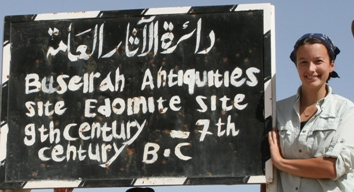 دائرة الآثار العامة
Buseirah Antiquities
site Edomite site
9th century – 7th
century B·C